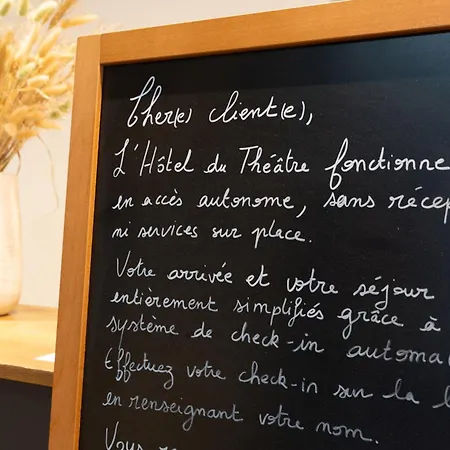 Cher(e) client(e),
L'Hôtel du Théâtre fonctionne
en accès autonome, sans récep
ni services sur place.
Votre arrivée et votre séjour
entièrement simplifiés grâce à
système de check-in automa
Effectuez votre check-in sur la
en renseignant votre nom.
Vous